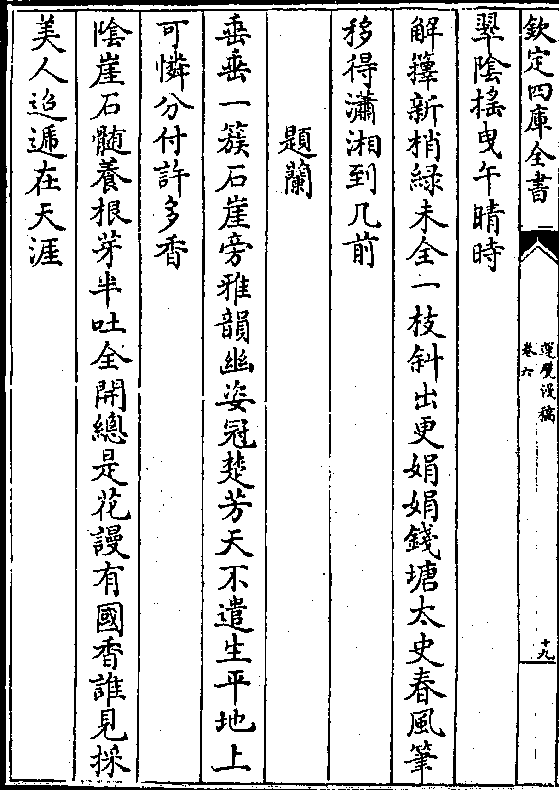 欽定四庫全書
運甓漫稿
卷六
十九
翠陰揺曳午晴時
解籜新梢緑未全一枝斜出更娟娟錢塘太史春風筆
移得瀟湘到几前
題蘭
垂垂一簇石崖旁雅韻幽姿冠楚芳天不遣生平地上
可憐分付許多香
陰崖石髓養根芽半吐全開總是花謾有國香誰見採
美人迢遞在天涯